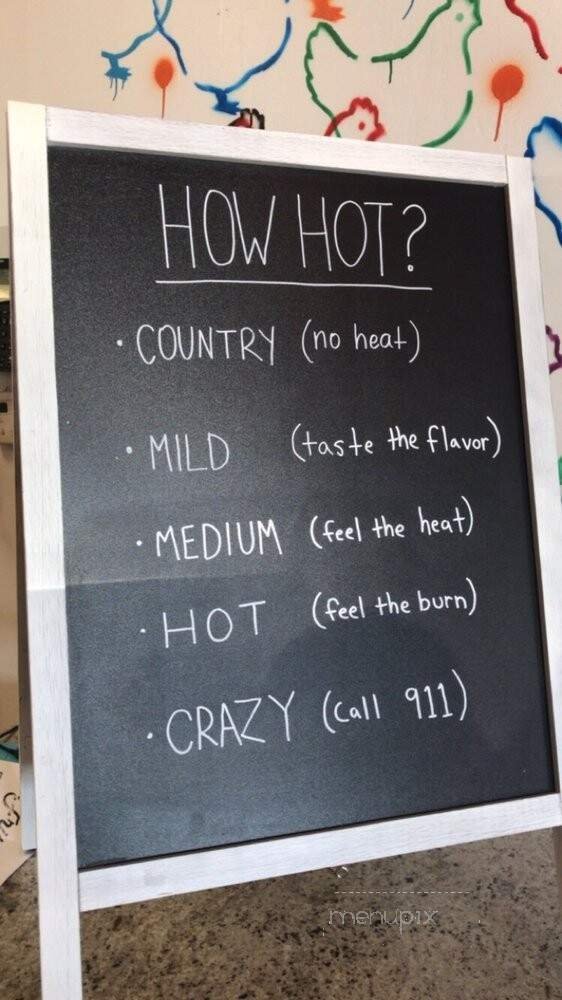 HOW HOT?
· COUNTRY (no heat)
· MILD (taste the flavor)
· MEDIUM (feel the heat)
· HOT (feel the burn)
· CRAZY (call 911)
menupix